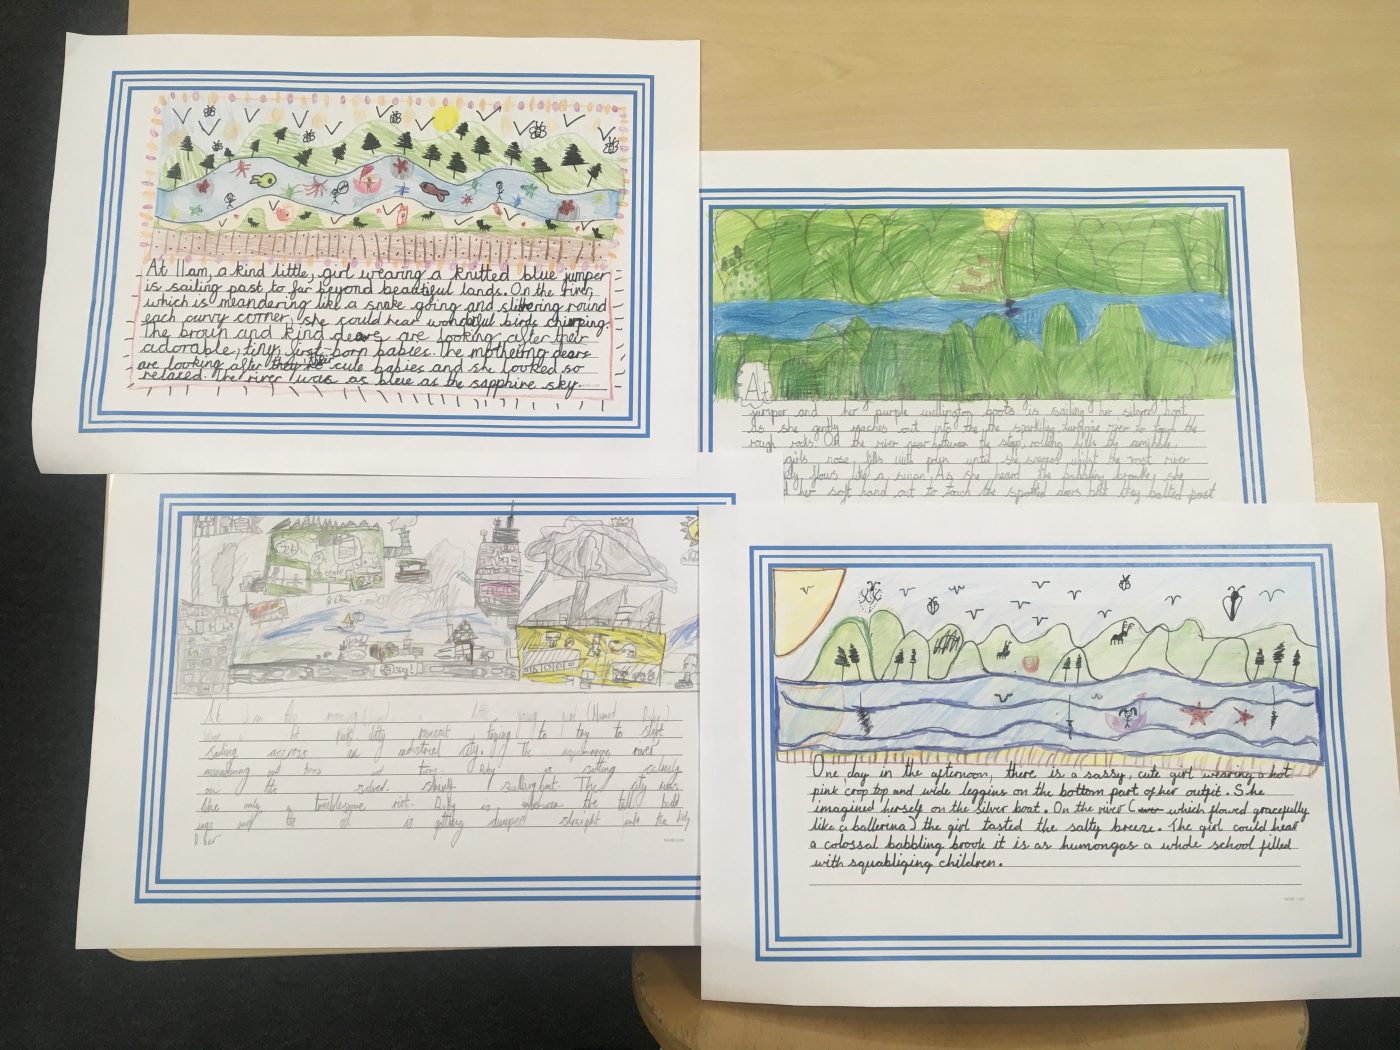 At 11am, a kind little, girl wearing a knitted blue jumper
is sailing past to far beyond beautiful lands. On the river,
which is meandering like a snake going and slithering round
each curvy corner, she could hear wonderful birds chirping.
The brown and kind dears are looking after their
adorable, tiny first-born babies. The mothering dears
are looking after they're their cute babies and she looked so
relaxed. The river was as blue as the sapphire sky.
At girl
jumper and her purple wellington boots is sailing her silver boat
as she gently reaches out into the the sparkling turquoise river to touch the
rough rocks. On the river near between the steep rolling hills the
girls nose fills with until she whilst the vast river
flows like a swan. As she heard the babbling she
her soft hand out to touch the spotted deers but they bolted past
At the morning young girl (Named
pink raincoat trying to try to start
sailing across an industrial city. The aquamarine river
meandering and turns and turns. Ruby is sitting calmly
on the silver shiny sailing boat. The city was
like only a troublesome riot. Ruby is inbetween the tall build
ings and the oil is getting dumped straight into the
River
One day in the afternoon, there is a sassy, cute girl wearing a hot
pink crop top and wide leggins on the bottom part of her outfit. She
imagined herself on the silver boat. On the river ( which flowed gracefully
like a ballerina) the girl tasted the salty breeze. The girl could hear
a colossal babbling brook it is as humongas a whole school filled
with squabliging children.